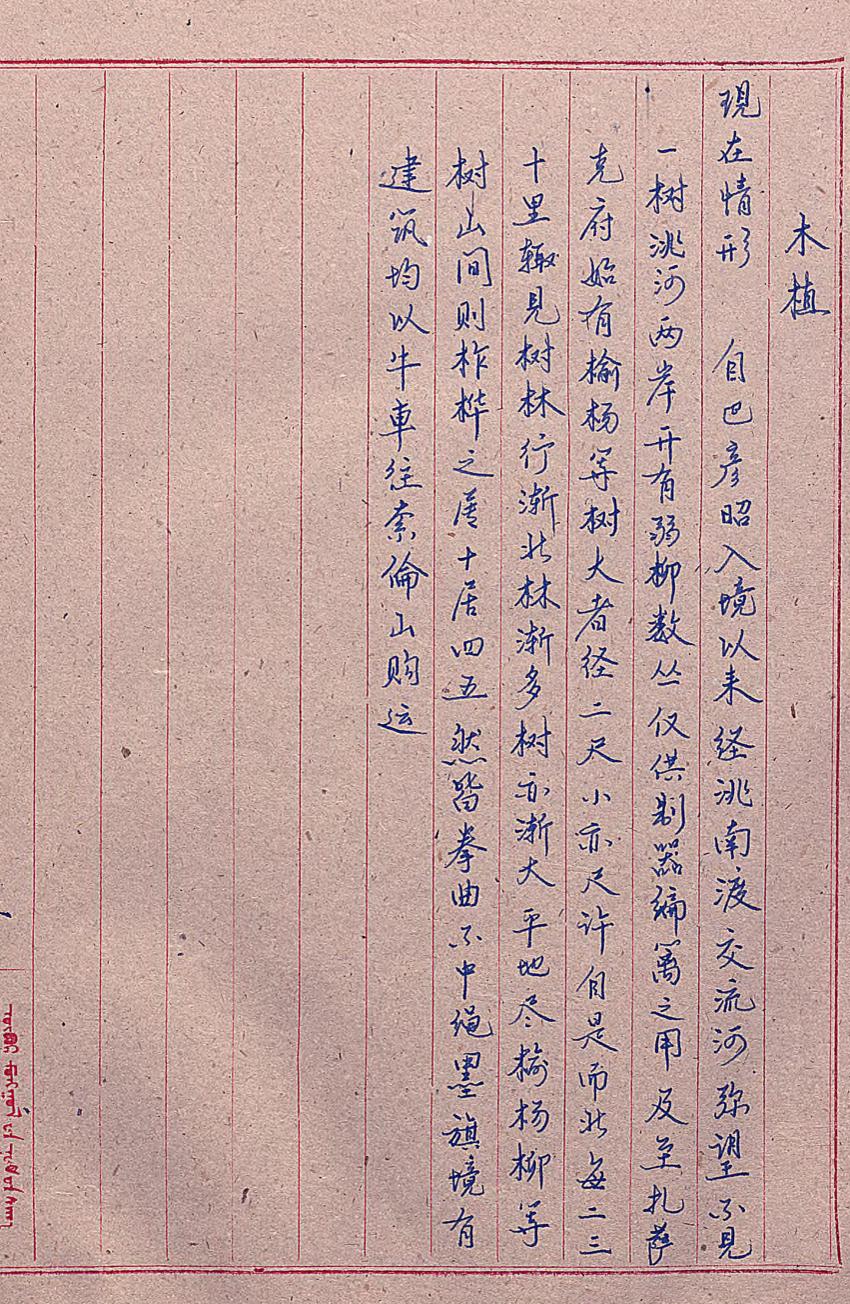 木植
現在情形 自巴彦昭入境以来经洮南渡交流河弥望不見
一树洮河两岸开有弱柳数丛仅供制器编篱之用及至扎萨
克府始有榆杨等树大者径二尺小亦尺许自是而北每二三
十里辄見树林行渐北林渐多树亦渐大平地尽榆杨柳等
树山间则柞桦之属十居四五然皆拳曲不中绳墨旗境有
建筑均以牛車往索倫山购运